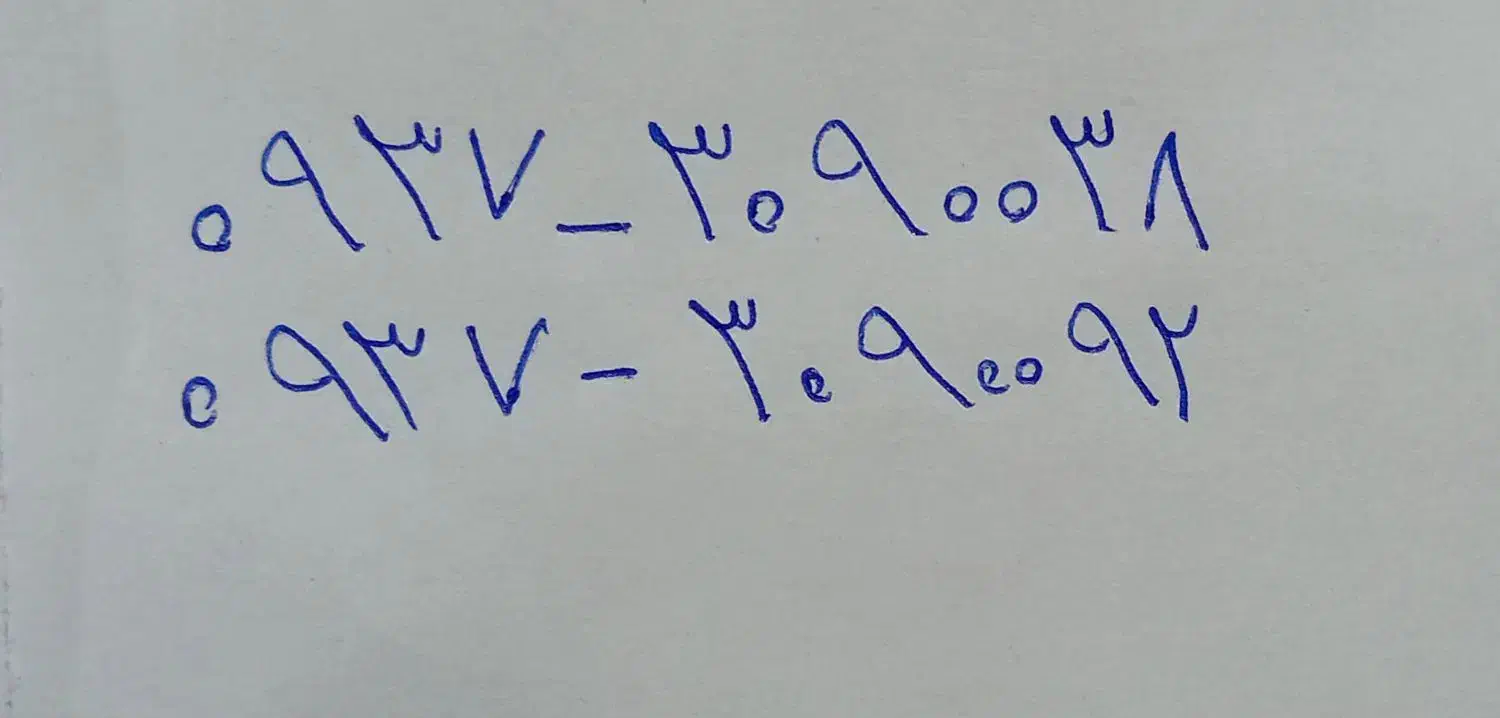 ۰۹۳۷_۳۰۹۰۰۳۸
۰۹۳۷-۳۰۹۰۰۹۲